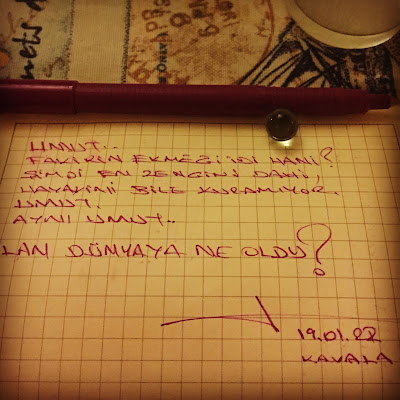 UMUT..
FAKİRİN EKMEĞİ'YDİ HANİ?
ŞİMDİ EN ZENGİNİ DAHİ,
HAYALİNİ BİLE KURAMIYOR.
UMUT.
AYNI UMUT..
LAN DÜNYAYA NE OLDU?
19.01.22
KAVALA